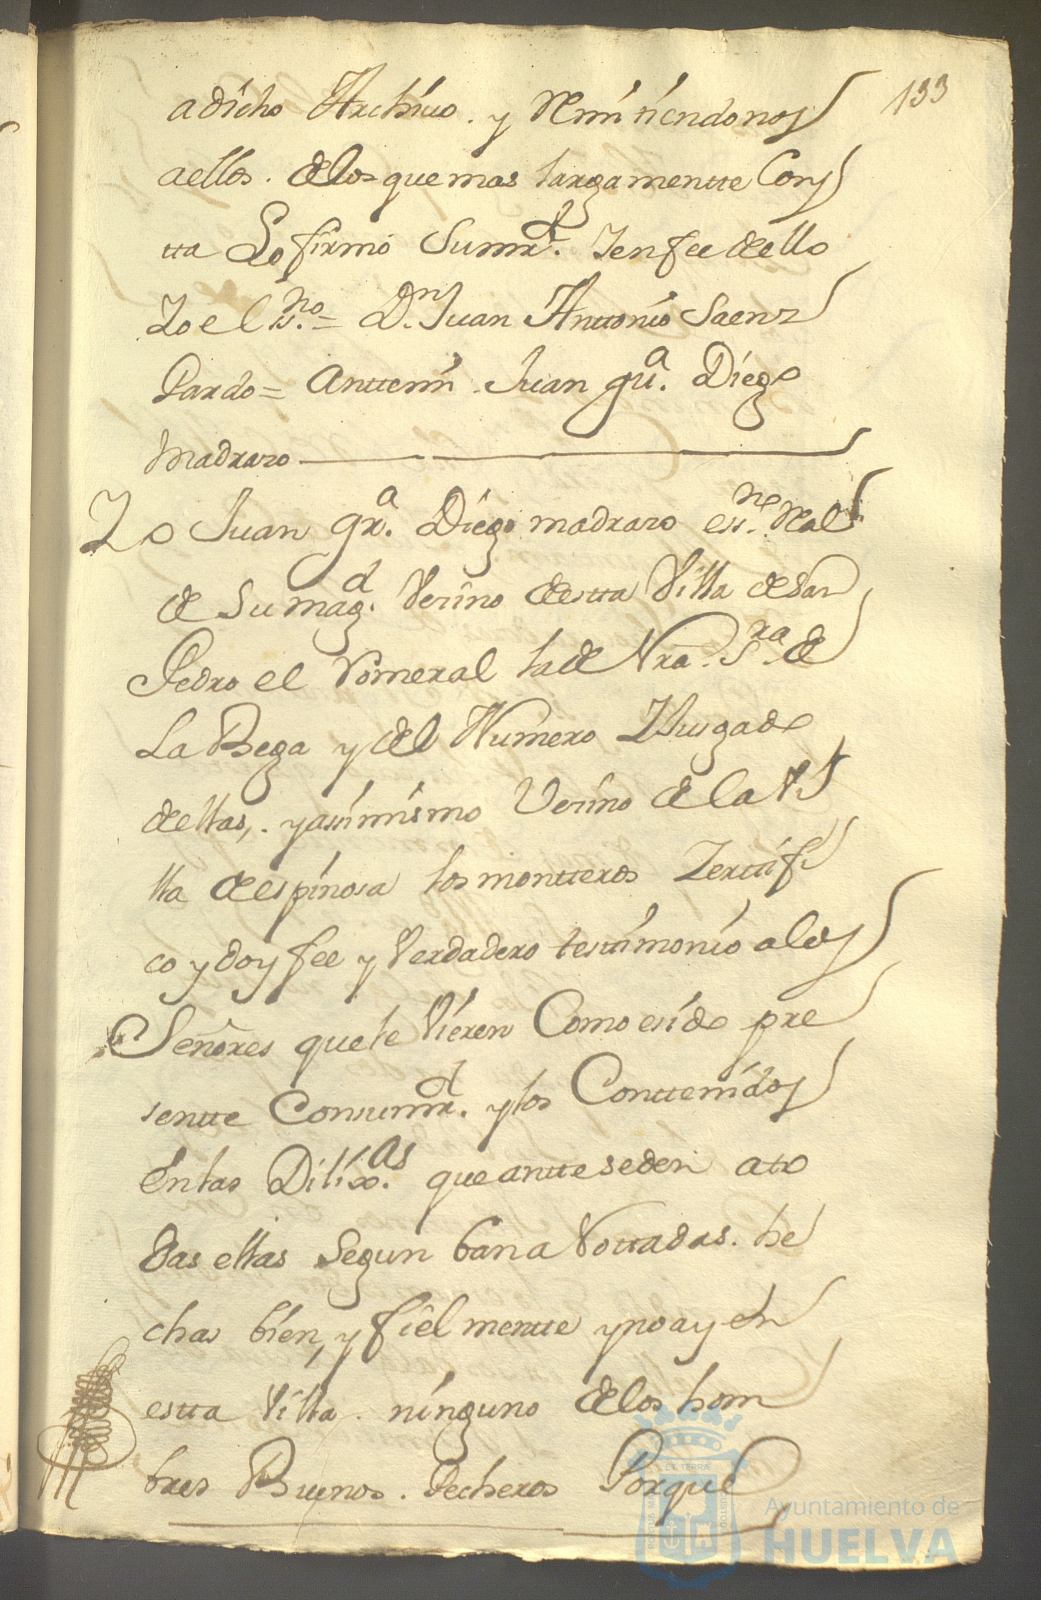 133
a dicho Archivo. y Remitiendonos
a ellos. de los que mas largamentte Cons
tta Lo firmo Sumrd. Y en fee de ello
Yo el sno.= Dn. Juan Anttonio Saenz
Pardo= Anttemi Juan gra. Diego
madrazo
Yo Juan gra. Diego madrazo essno. Real
de Su magd. Vezino de estta Villa de San
Pedro el Romeral la de Nra. Sra. de
La Bega y del Numero Y Juzgado
de ellas,. y asimismo Vezino de la Vi
lla de espinosa los montteros Zertifi
co y doy fee y Verdadero testimonio a los
Señores que le Vieren Como e sido pre
sentte Con sumrd. y los Conttenidos
En las Dilixas. que antteseden a to
das ellas Segun ban a Nottadas. he
chas bien, y fielmentte y no ay en
estta Villa. ninguno de los hom
bres Buenos. Pecheros Porque
ET TERRÆ
Ayuntamiento de
HUELVA